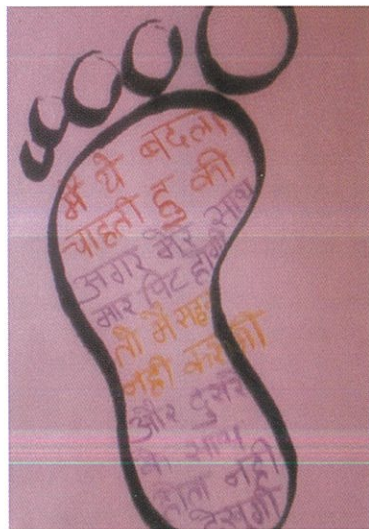 मै ये बदला
चाहती हुँ की
अगर मेरे साथ
मार पिट होगा
तो मै सहन
नही करुगी
और दुसरे
के साथ
होता नही
देखुगी